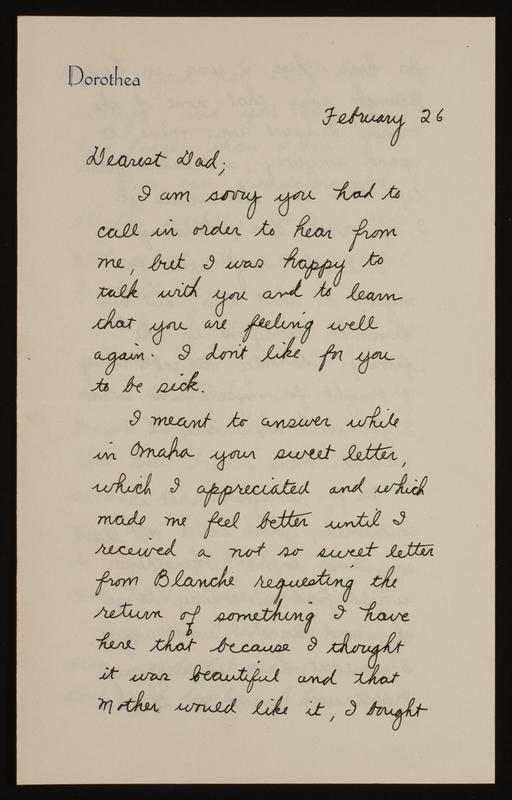 Dorothea
February 26
Dearest Dad;
I am sorry you had to
call in order to hear from
me, but I was happy to
talk with you and to learn
that you are feeling well
again. I don't like for you
to be sick.
I meant to answer while
in Omaha your sweet letter,
which I appreciated and which
made me feel better until I
received a not so sweet letter
from Blanche requesting the
return of something I have
here that because I thought
it was beautiful and that
Mother would like it, I bought